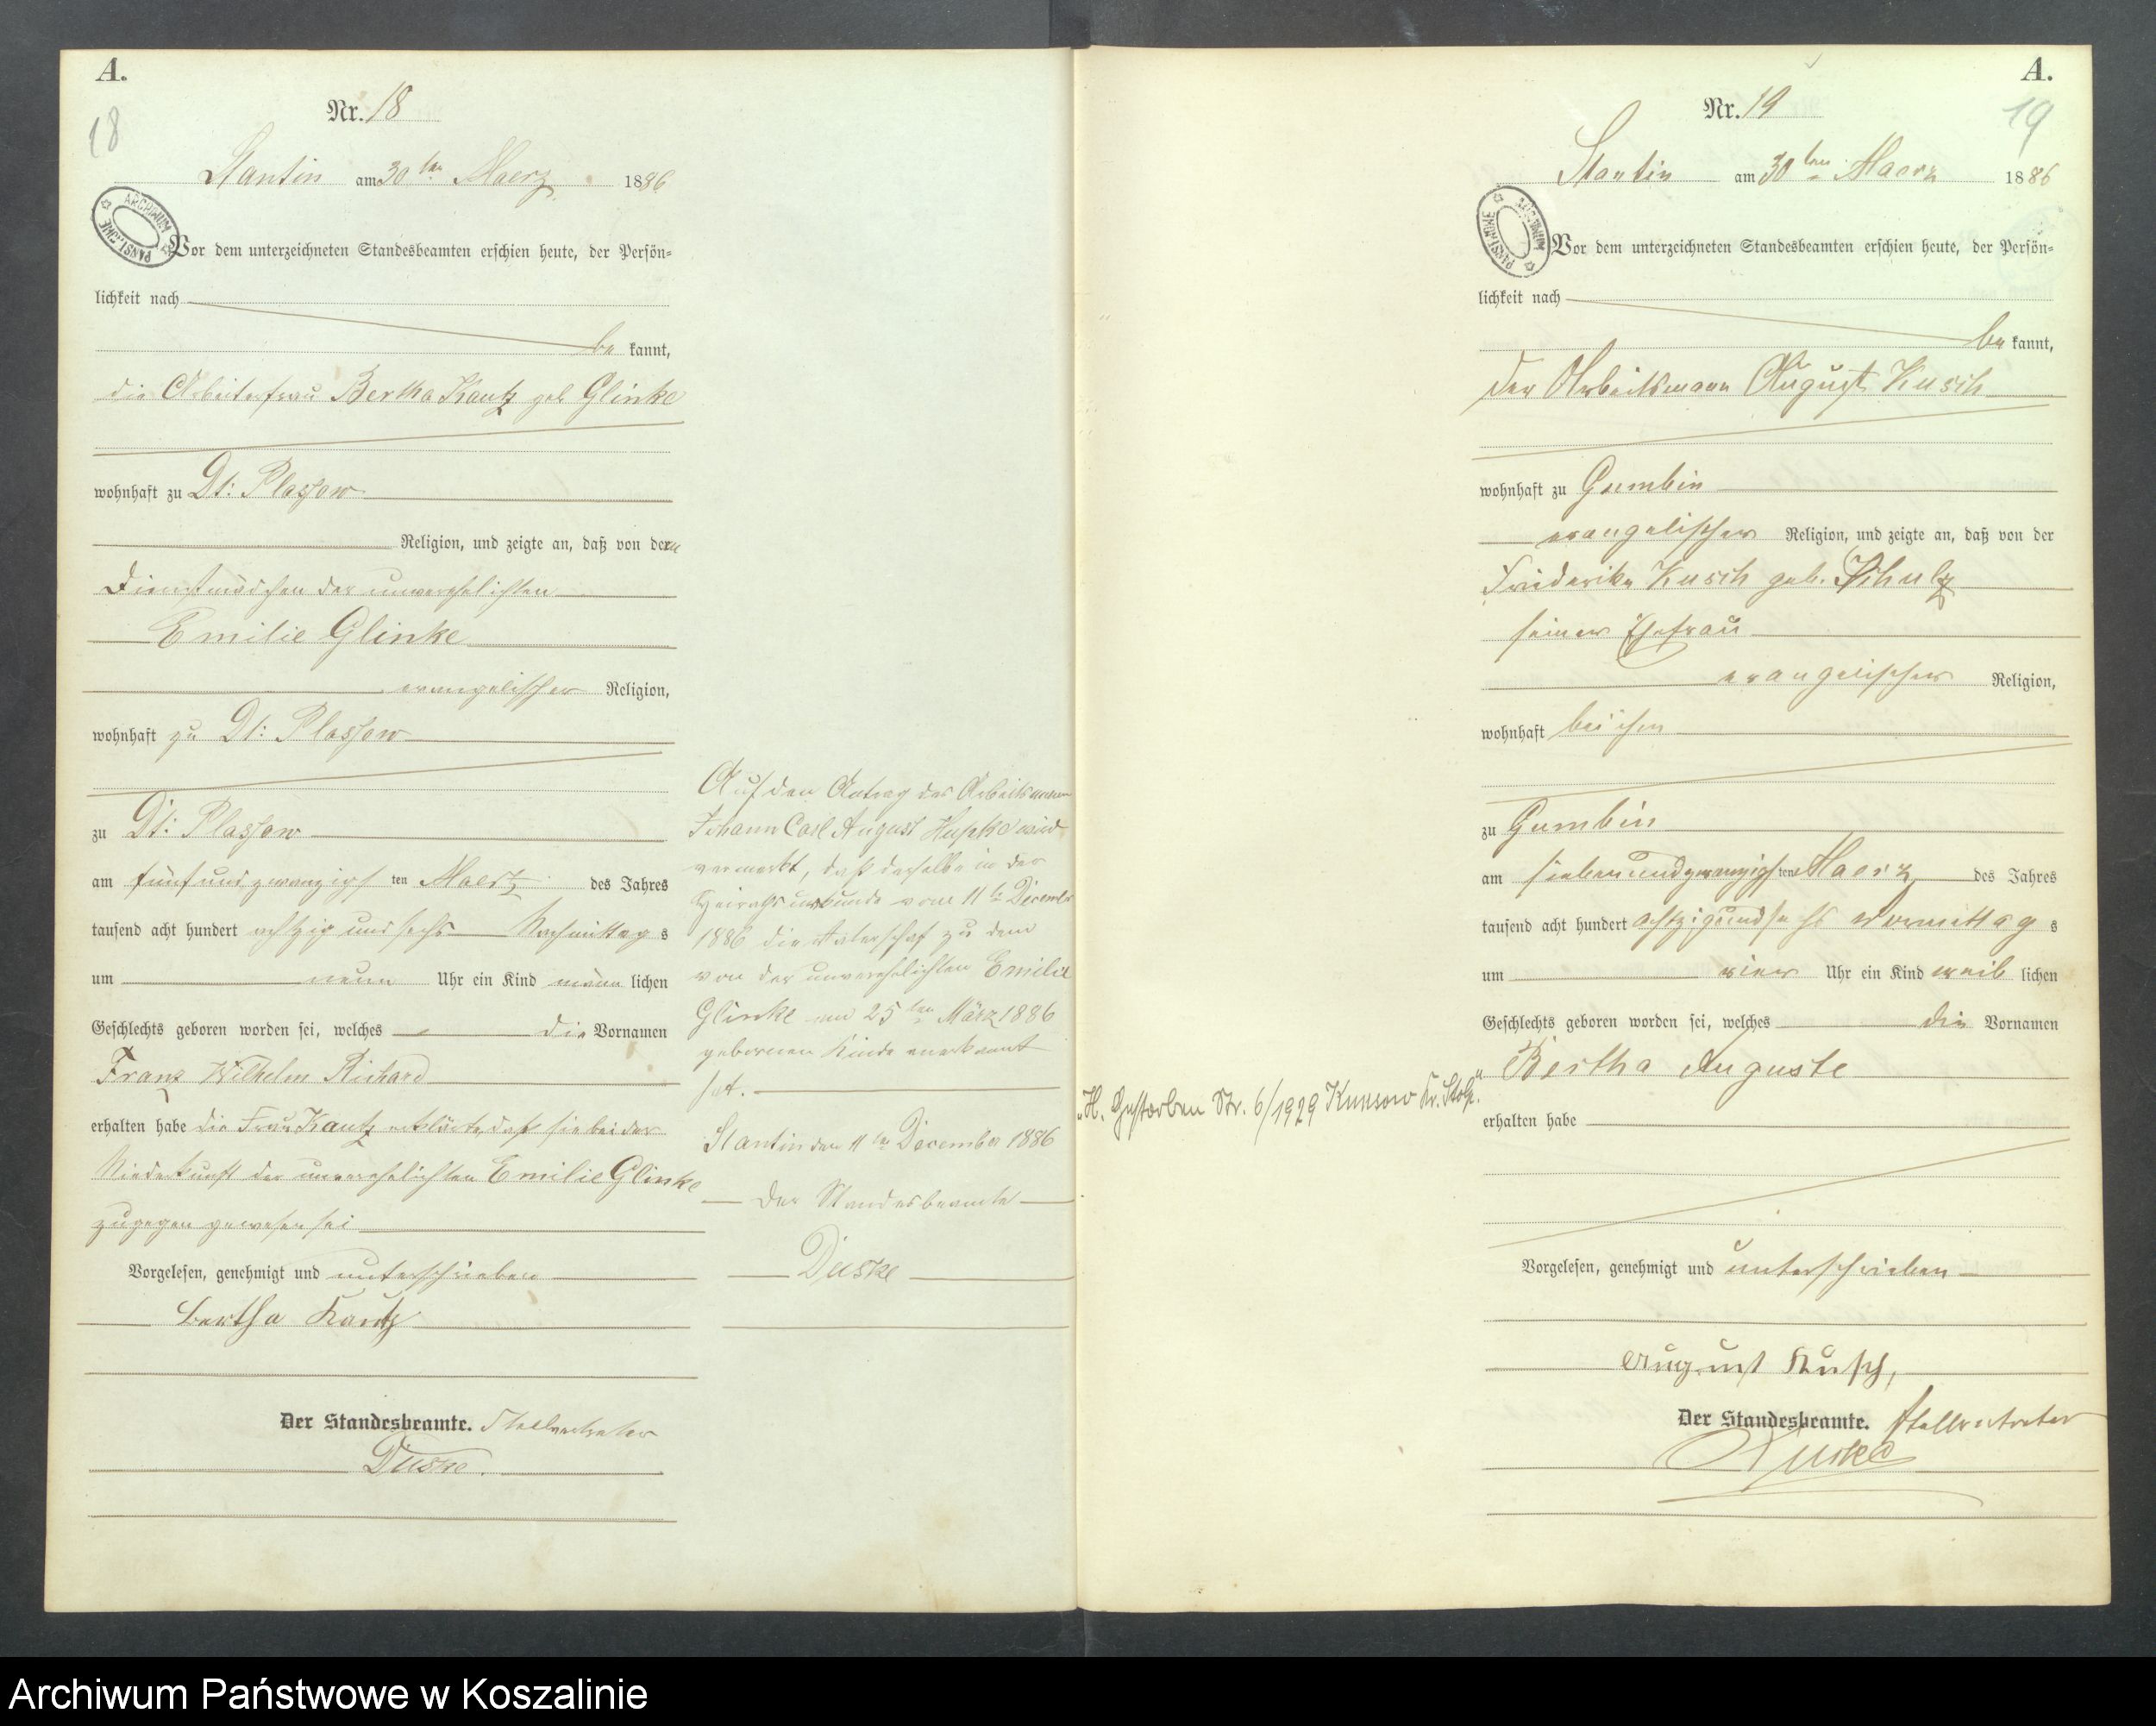 A.
Nr. 18
18
Stantin am 30ten Maerz 1886
ARCHIWUM PAŃSTWOWE
Vor dem unterzeichneten Standesbeamten erschien heute, der Persön=
lichkeit nach
be kannt,
die Arbeiterfrau Bertha Kautz geb Glinke
wohnhaft zu Dt: Plassow
Religion, und zeigte an, daß von dem
Dienstmädchen der unverehelichten
Emilie Glinke
evangelischer Religion,
wohnhaft zu Dt: Plassow
zu Dt: Plassow
am fünf und zwanzigsten Maerz des Jahres
tausend acht hundert achtzig und sechs Nachmittags
um neun Uhr ein Kind männlichen
Geschlechts geboren worden sei, welches die Vornamen
Franz Wilhelm Richard
erhalten habe die Frau Kautz erklärte, daß sie bei der
Niederkunft der unverehelichten Emilie Glinke
zugegen gewesen sei
Vorgelesen, genehmigt und unterschrieben
Bertha Kautz
Der Standesbeamte. Stellvertreter
Duske.
Auf den Antrag des Arbeitsmann
Johann Carl August wird
vermerkt, daß derselbe in der
Heirathsurkunde vom 11ten December
1886 die Vaterschaft zu dem
von der unverehelichten Emilie
Glinke am 25ten März 1886
geborenen Kinde anerkannt
hat.
Stantin den 11ten December 1886
Der Standesbeamte
Duske
A.
Nr. 19
19
Stantin am 30ten Maerz 1886
ARCHIWUM PAŃSTWOWE
Vor dem unterzeichneten Standesbeamten erschien heute, der Persön=
lichkeit nach
be kannt,
der Arbeitsmann August Kusch
wohnhaft zu Gumbin
evangelischer Religion, und zeigte an, daß von der
Friderike Kusch geb. Schulz
seiner Ehefrau
evangelischer Religion,
wohnhaft bei ihm
zu Gumbin
am siebenundzwanzigsten Maerz des Jahres
tausend acht hundert achtzig und sechs Vormittags
um vier Uhr ein Kind weiblichen
Geschlechts geboren worden sei, welches die Vornamen
Bertha Auguste
„H. Gestorben Nr. 6/1929 Kunsow Kr. Stolp."
erhalten habe
Vorgelesen, genehmigt und unterschrieben
August Kusch,
Der Standesbeamte. Stellvertreter
Duske
Archiwum Państwowe w Koszalinie